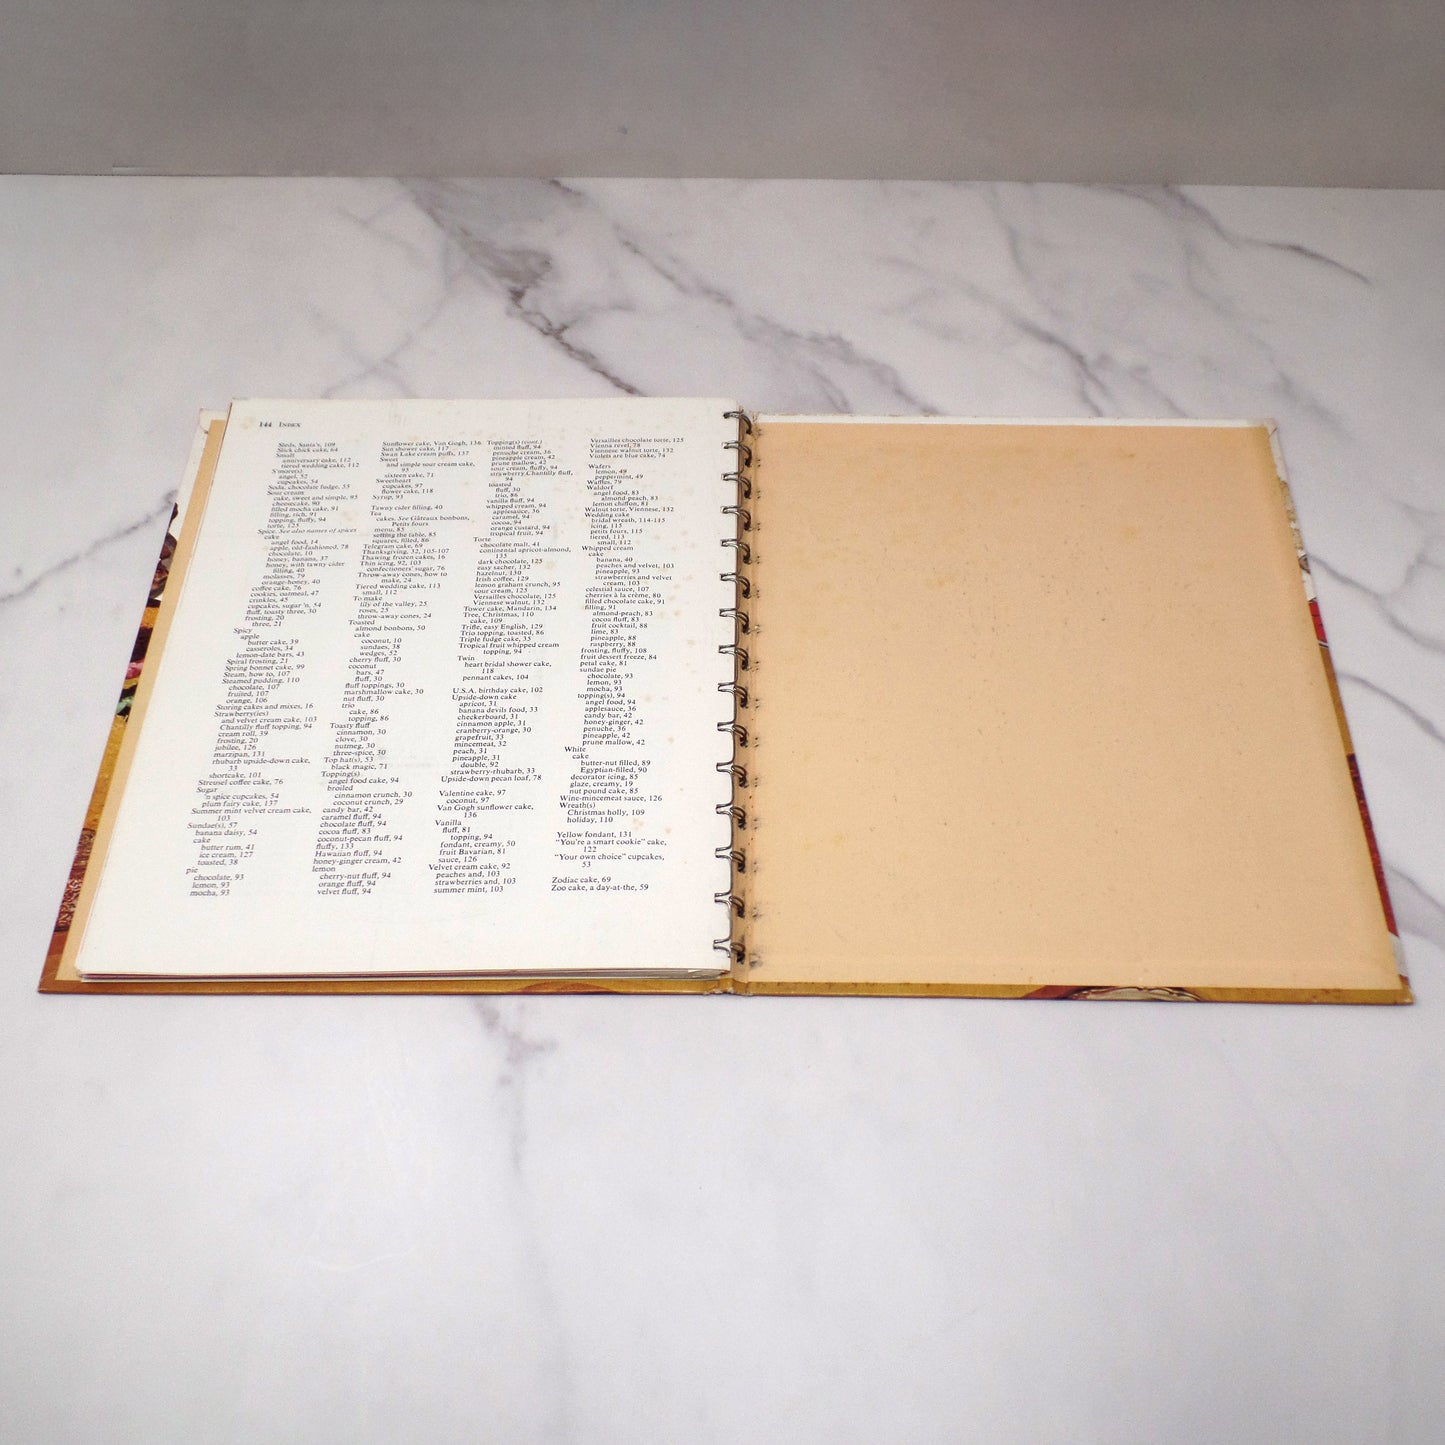 144 INDEX
Sleds, Santa's, 109
Slick chick cake, 64
Small
anniversary cake, 112
tiered wedding cake, 112
S'more(s)
angel, 52
cupcakes, 54
Soda, chocolate fudge, 55
Sour cream
cake, sweet and simple, 95
cheesecake, 90
filled mocha cake, 91
filling, rich, 91
topping, fluffy, 94
torte, 125
Spice. See also names of spices
cake
angel food, 14
apple, old-fashioned, 78
chocolate, 10
honey, banana, 37
honey, with tawny cider
filling, 40
molasses, 79
orange-honey, 40
coffee cake, 76
cookies, oatmeal, 47
crinkles, 45
cupcakes, sugar 'n, 54
fluff, toasty three, 30
frosting, 20
three, 21
Spicy
apple
butter cake, 39
casseroles, 34
lemon-date bars, 43
Spiral frosting, 21
Spring bonnet cake, 99
Steam, how to, 107
Steamed pudding, 110
chocolate, 107
fruited, 107
orange, 106
Storing cakes and mixes, 16
Strawberry(ies)
and velvet cream cake, 103
Chantilly fluff topping, 94
cream roll, 39
frosting, 20
jubilee, 126
marzipan, 131
rhubarb upside-down cake,
33
shortcake, 101
Streusel coffee cake, 76
Sugar
'n spice cupcakes, 54
plum fairy cake, 137
Summer mint velvet cream cake,
103
Sundae(s), 57
banana daisy, 54
cake
butter rum, 41
ice cream, 127
toasted, 38
pie
chocolate, 93
lemon, 93
mocha, 93
Sunflower cake, Van Gogh, 136
Sun shower cake, 117
Swan Lake cream puffs, 137
Sweet
and simple sour cream cake,
95
sixteen cake, 71
Sweetheart
cupcakes, 97
flower cake, 118
Syrup, 93
Tawny cider filling, 40
Tea
cakes. See Gâteaux bonbons,
Petits fours
menu, 85
setting the table, 85
squares, filled, 86
Telegram cake, 69
Thanksgiving, 32, 105-107
Thawing frozen cakes, 16
Thin icing, 92, 103
confectioners' sugar, 76
Throw-away cones, how to
make, 24
Tiered wedding cake, 113
small, 112
To make
lily of the valley, 25
roses, 25
throw-away cones, 24
Toasted
almond bonbons, 50
cake
coconut, 10
sundaes, 38
wedges, 52
cherry fluff, 30
coconut
bars, 47
fluff, 30
fluff toppings, 30
marshmallow cake, 30
nut fluff, 30
trio
cake, 86
topping, 86
Toasty fluff
cinnamon, 30
clove, 30
nutmeg, 30
three-spice, 30
Top hat(s), 53
black magic, 71
Topping(s)
angel food cake, 94
broiled
cinnamon crunch, 30
coconut crunch, 29
candy bar, 42
caramel fluff, 94
chocolate fluff, 94
cocoa fluff, 83
coconut-pecan fluff, 94
fluffy, 133
Hawaiian fluff, 94
honey-ginger cream, 42
lemon
cherry-nut fluff, 94
orange fluff, 94
velvet fluff, 94
Topping(s) (cont.)
minted fluff, 94
penuche cream, 36
pineapple cream, 42
prune mallow, 42
sour cream, fluffy, 94
strawberry, Chantilly fluff,
94
toasted
fluff, 30
trio, 86
vanilla fluff, 94
whipped cream, 94
applesauce, 36
caramel, 94
cocoa, 94
orange custard, 94
tropical fruit, 94
Torte
chocolate malt, 41
continental apricot-almond,
135
dark chocolate, 125
easy sacher, 132
hazelnut, 130
Irish coffee, 129
lemon graham crunch, 95
sour cream, 125
Versailles chocolate, 125
Viennese walnut, 132
Tower cake, Mandarin, 134
Tree, Christmas, 110
cake, 109
Trifle, easy English, 129
Trio topping, toasted, 86
Triple fudge cake, 35
Tropical fruit whipped cream
topping, 94
Twin
heart bridal shower cake,
118
pennant cakes, 104
U.S.A. birthday cake, 102
Upside-down cake
apricot, 31
banana devils food, 33
checkerboard, 31
cinnamon apple, 31
cranberry-orange, 30
grapefruit, 33
mincemeat, 32
peach, 31
pineapple, 31
double, 92
strawberry-rhubarb, 33
Upside-down pecan loaf, 78
Valentine cake, 97
coconut, 97
Van Gogh sunflower cake,
136
Vanilla
fluff, 81
topping, 94
fondant, creamy, 50
fruit Bavarian, 81
sauce, 126
Velvet cream cake, 92
peaches and, 103
strawberries and, 103
summer mint, 103
Versailles chocolate torte, 125
Vienna revel, 78
Viennese walnut torte, 132
Violets are blue cake, 74
Wafers
lemon, 49
peppermint, 49
Waffles, 79
Waldorf
angel food, 83
almond-peach, 83
lemon chiffon, 81
Walnut torte, Viennese, 132
Wedding cake
bridal wreath, 114-115
icing, 115
petits fours, 115
tiered, 113
small, 112
Whipped cream
cake
banana, 40
peaches and velvet, 103
pineapple, 93
strawberries and velvet
cream, 103
celestial sauce, 107
cherries à la crème, 80
filled chocolate cake, 91
filling, 91
almond-peach, 83
cocoa fluff, 83
fruit cocktail, 88
lime, 83
pineapple, 88
raspberry, 88
frosting, fluffy, 108
fruit dessert freeze, 84
petal cake, 81
sundae pie
chocolate, 93
lemon, 93
mocha, 93
topping(s), 94
angel food, 94
applesauce, 36
candy bar, 42
honey-ginger, 42
penuche, 36
pineapple, 42
prune mallow, 42
White
cake
butter-nut filled, 89
Egyptian-filled, 90
decorator icing, 85
glaze, creamy, 19
nut pound cake, 85
Wine-mincemeat sauce, 126
Wreath(s)
Christmas holly, 109
holiday, 110
Yellow fondant, 131
"You're a smart cookie" cake,
122
"Your own choice" cupcakes,
53
Zodiac cake, 69
Zoo cake, a day-at-the, 59